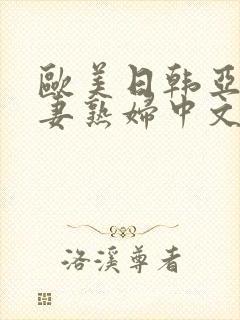 歐美日韩亞
妻熟婦中文
洛溪尊者